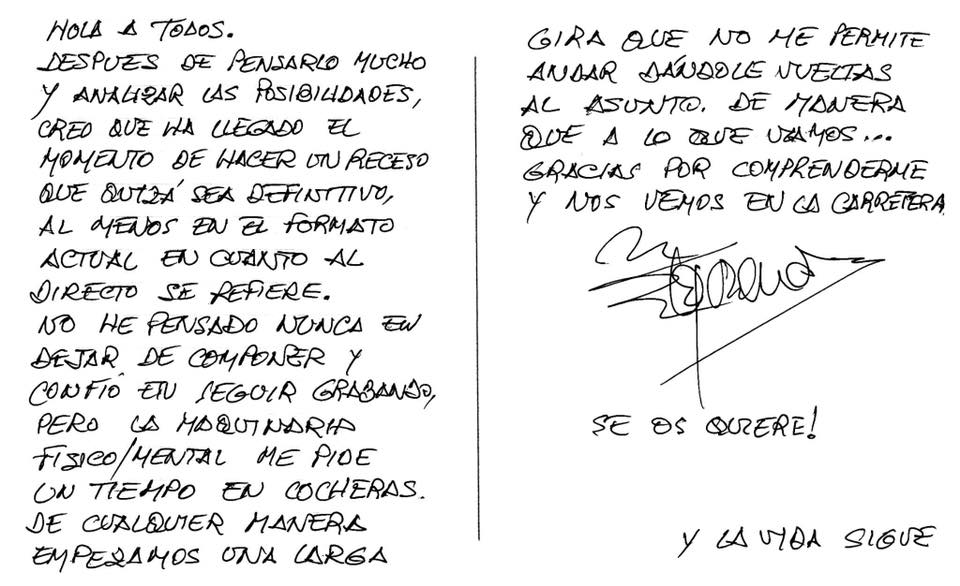 HOLA A TODOS.
DESPUES DE PENSARLO MUCHO
Y ANALIZAR LAS POSIBILIDADES,
CREO QUE HA LLEGADO EL
MOMENTO DE HACER UN RECESO
QUE QUIZÁ SEA DEFINITIVO,
AL MENOS EN EL FORMATO
ACTUAL EN CUANTO AL
DIRECTO SE REFIERE.
NO HE PENSADO NUNCA EN
DEJAR DE COMPONER Y
CONFIÓ EN SEGUIR GRABANDO,
PERO LA MAQUINARIA
FISICO/MENTAL ME PIDE
UN TIEMPO EN COCHERAS.
DE CUALQUIER MANERA
EMPEZAMOS UNA LARGA
GIRA QUE NO ME PERMITE
ANDAR DÁNDOLE VUELTAS
AL ASUNTO. DE MANERA
QUE A LO QUE VAMOS...
GRACIAS POR COMPRENDERME
Y NOS VEMOS EN LA CARRETERA
SE OS QUIERE!
Y LA VIDA SIGUE